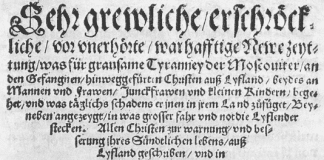 Sehr grewliche/erschröck-
liche/vor vnerhörte/warhafftige Newe zeyt-
tung/was für grausame Tyranney der Moscouiter/an
den Gefangnen/hinweggefürten Christen auß Lyfland/beydes an
Mannen vnd Frawen/Junckfrawen vnd kleinen Kindern/bege-
het/vnd was täglichs schadens er jnen in jrem Land zufüget/Bey-
neben angezeygt/in was grosser fahr vnd not die Lyflender
stecken. Allen Christen zur warnung/vnd bes-
serung jhres Sündtlichen lebens/auß
Lyfland geschriben/vnd in